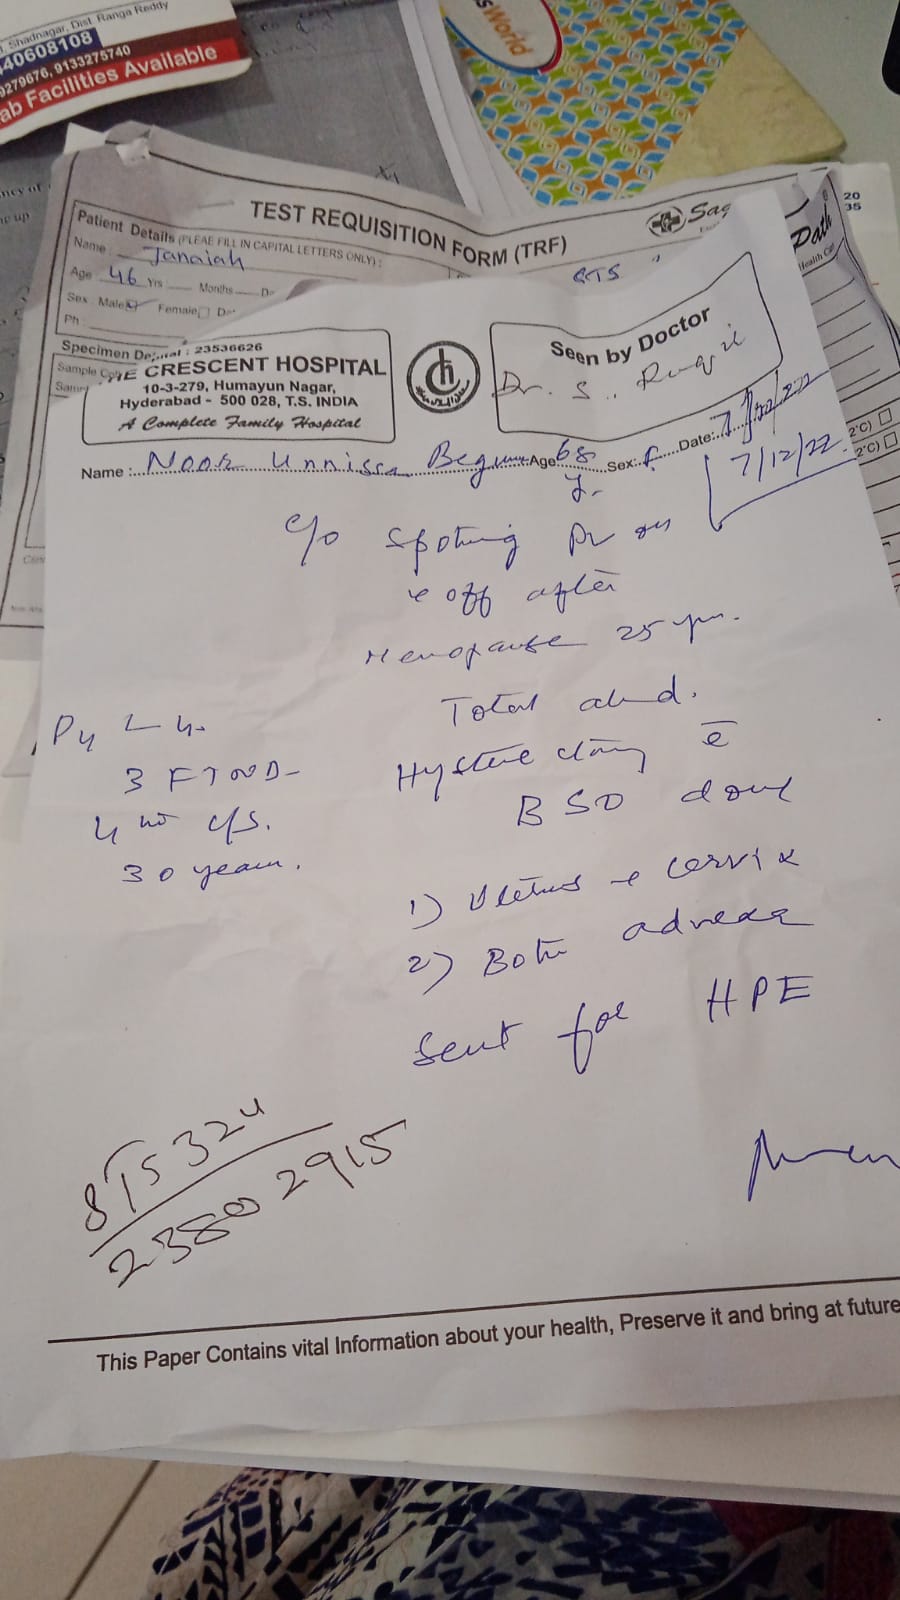 Shadnagar, Dist. Ranga Reddy
40608108
9279676, 9133275740
ab Facilities Available
sWorld
TEST REQUISITION FORM (TRF)
Sag
Path
20
35
Patient Details (PLEAE FILL IN CAPITAL LETTERS ONLY) :
Name Janaiah
Age 46 Yrs Months
Sex Male Female
Ph
STS
Health C
Specimen De : 23536626
Sample
CRESCENT HOSPITAL
10-3-279, Humayun Nagar,
Hyderabad - 500 028, T.S. INDIA
A Complete Family Hospital
Seen by Doctor
Dr. S.
Name : Noor Unnissa Begum Age 68 Sex: f Date: 7/12/22
7/12/22
2°C)
2°C)
c/o Spotting PV on
& off after
Menopause 25 yrs.
Total abd.
Hysterectomy c̄
BSO done
P4 L4.
3 FTND-
4 th c/s.
30 years.
1) Uterus & cervix
2) Both adnexa
Sent for HPE
8T5324
23802915
This Paper Contains vital Information about your health, Preserve it and bring at future